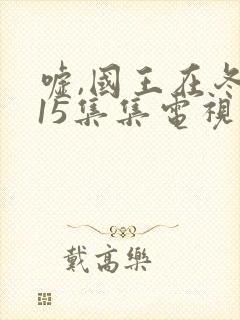 嘘,國王在冬
15集集電視
戴高樂